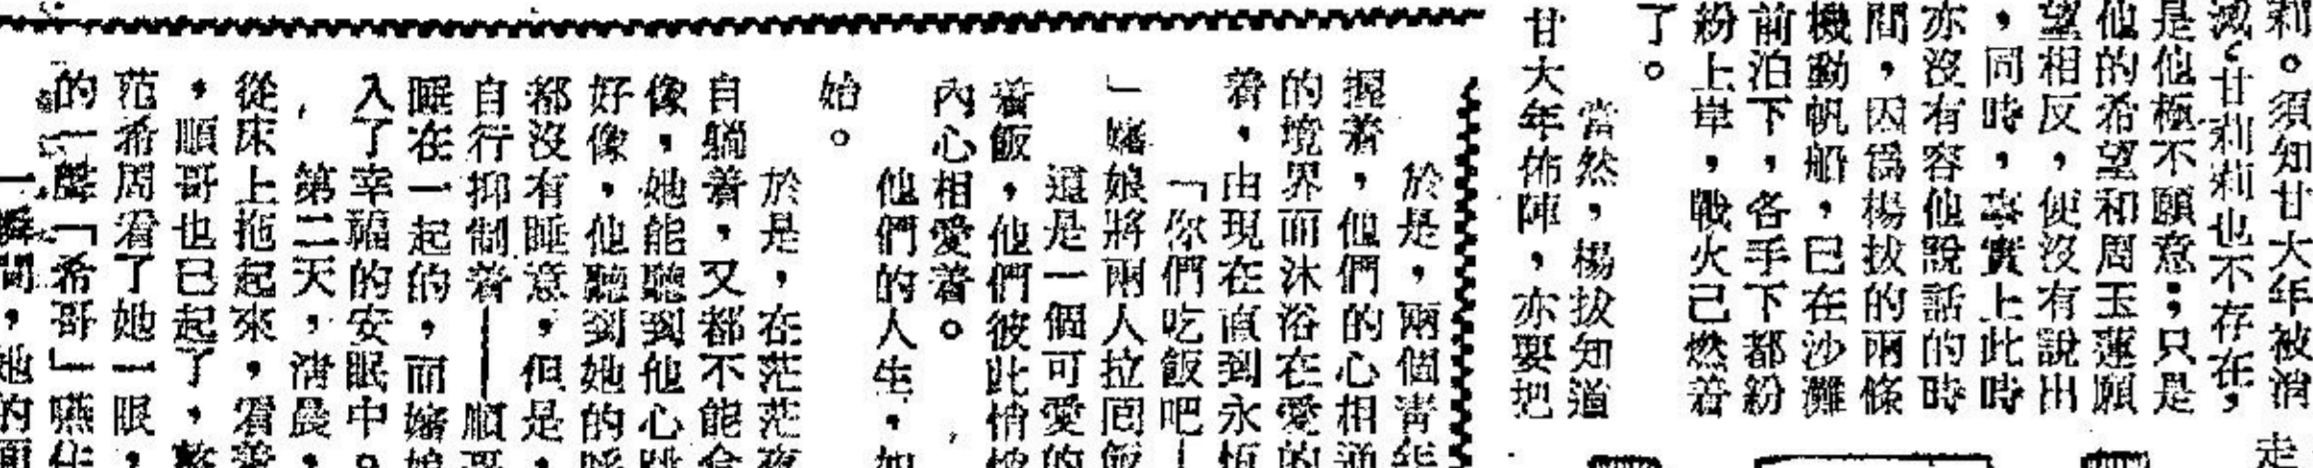 莉。須知甘大年被消
滅,甘莉莉也不存在,
是他極不願意;只是
他的希望和周玉蓮願
望相反,便沒有說出
,同時,事實上此時
亦沒有容他說話的時
間,因爲楊拔的兩條
機動帆船,已在沙灘
前泊下,各手下都紛
紛上岸,戰火己燃着
了。
當然,楊拔知道
甘大年佈陣,亦要把
走
於是,兩個靑年
握着,他們的心相通
的境界而沐浴在愛的
着,由現在直到永恆
「你們吃飯吧—
」嬸娘將兩人拉回飯
這是一個可愛的
着飯,他們彼此情
內心相愛着。
他們的人生,如
始。
於是,在茫茫夜
自躺着,又都不能合
像,她能聽到他心跳
好像,他聽到她的呼
都沒有睡意,但是,
自行抑制着——順哥
睡在一起的,而嬸娘
入了幸福的安眠中。
第二天,淸晨,
從床上拖起來,看着
,順哥也已起了,整
范希周看了她一眼,
的一聲「希哥」
一瞬間,她的面